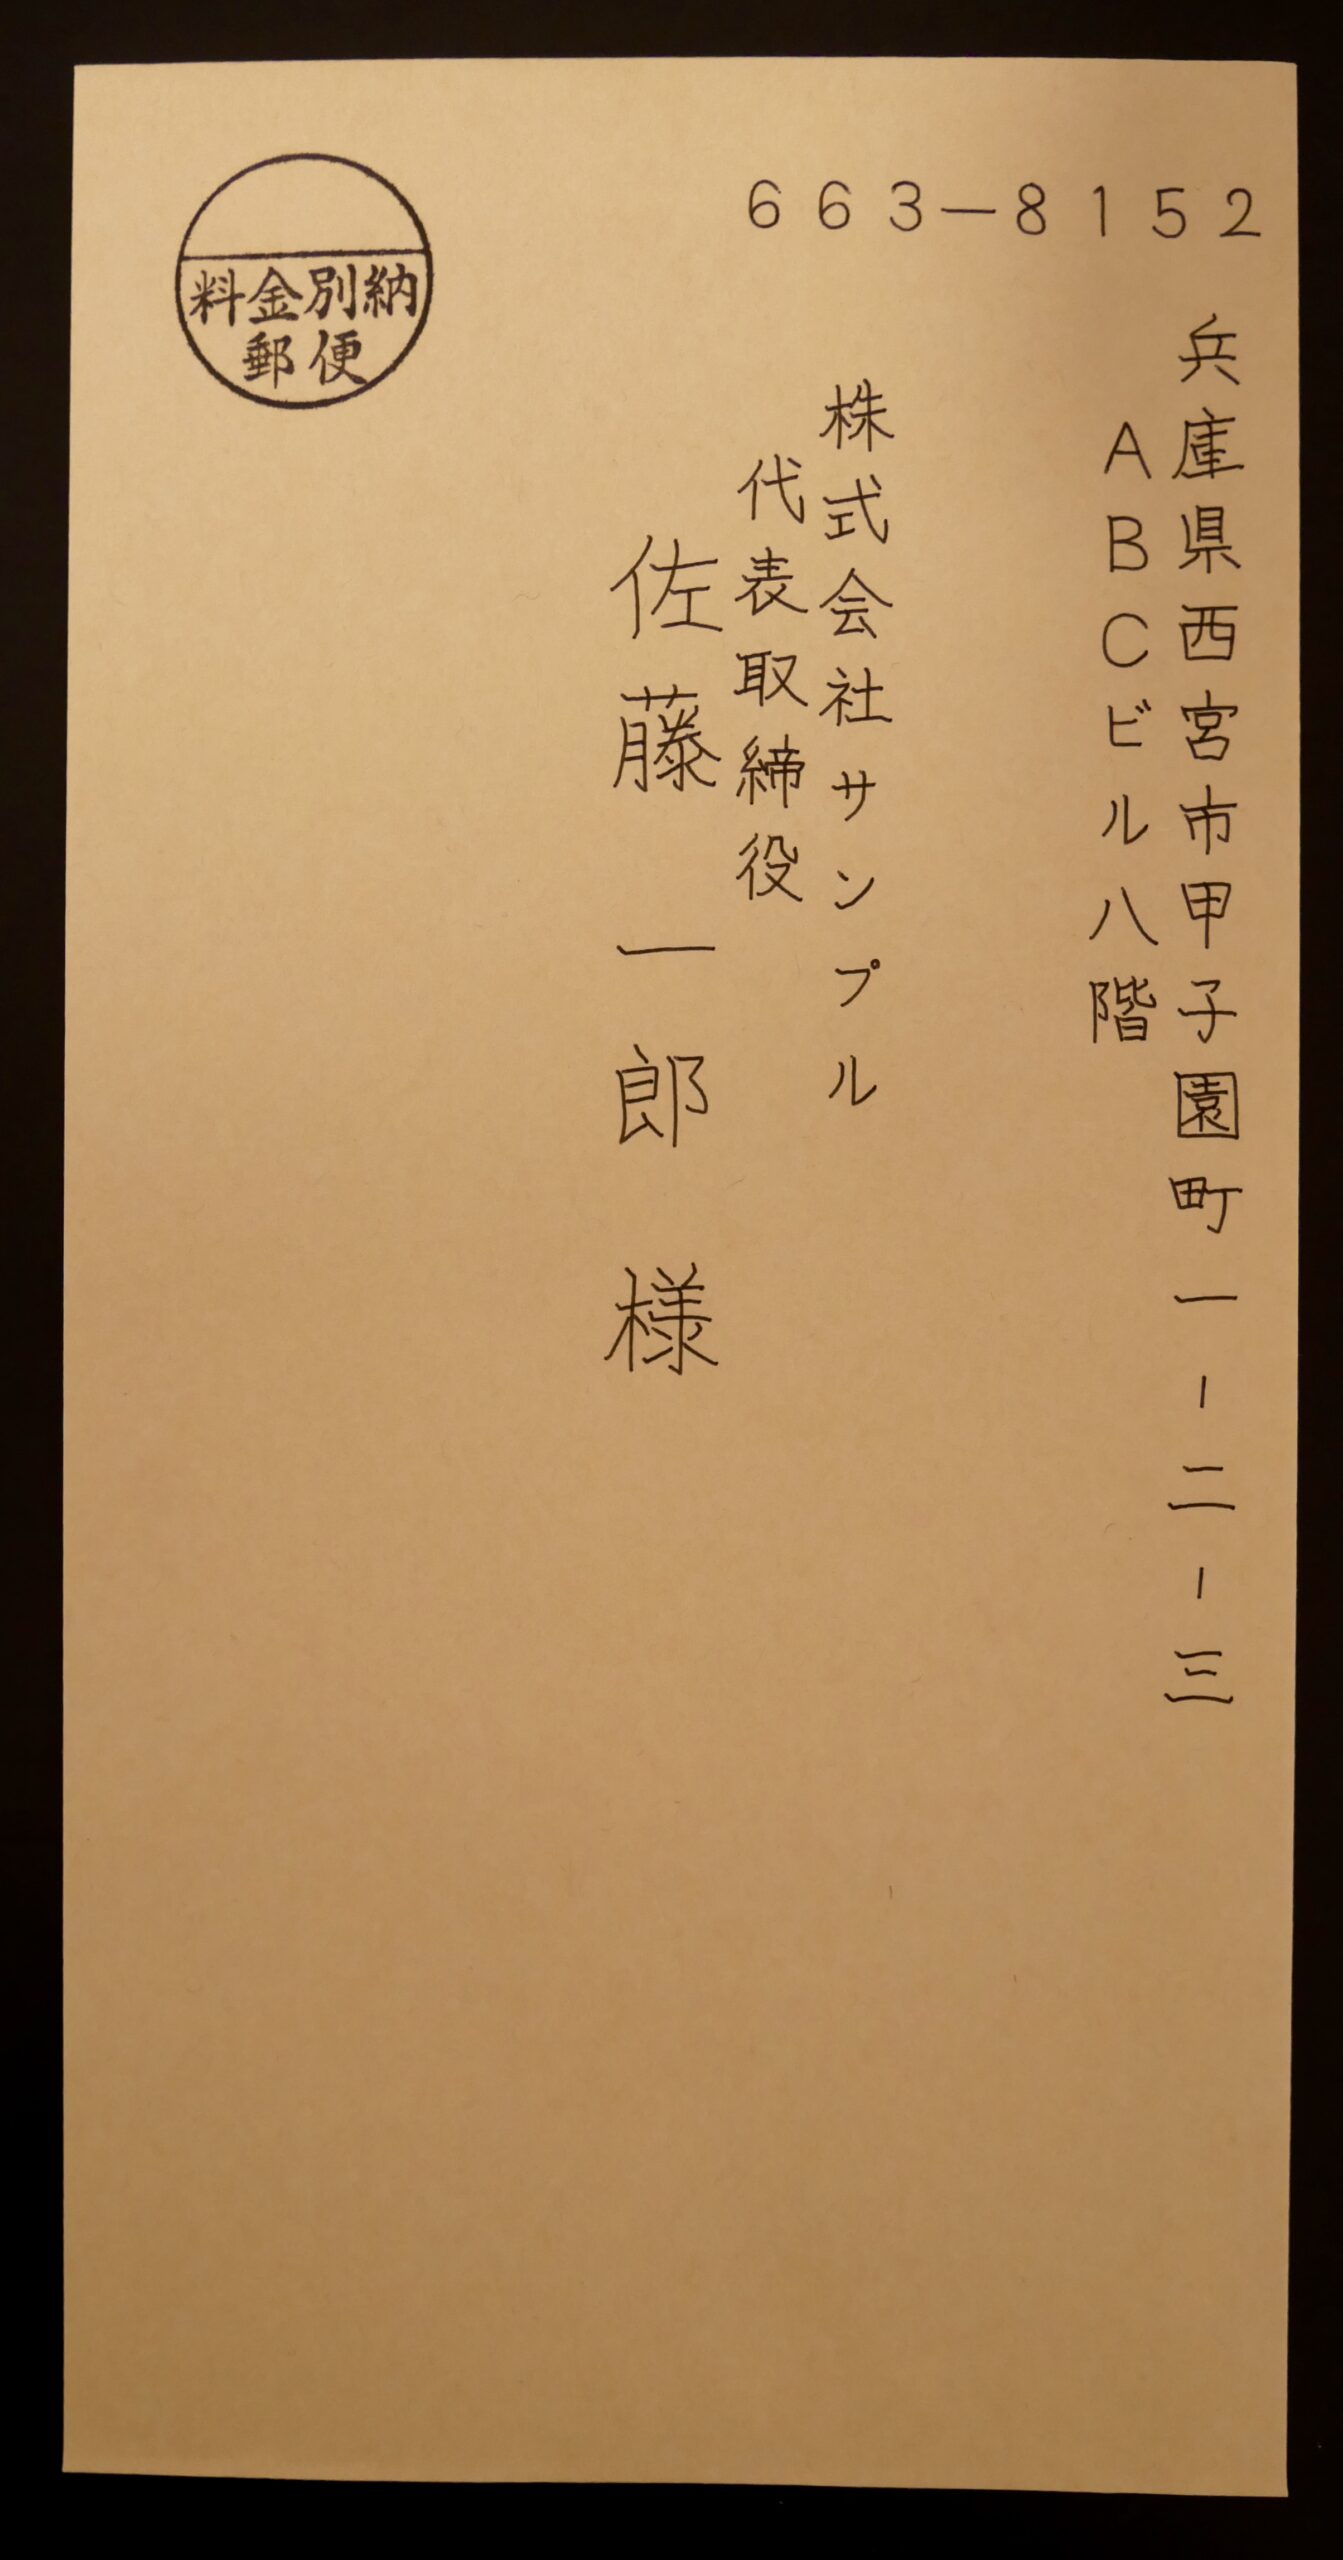 663-8152
兵庫県西宮市甲子園町一-二-三
ABCビル八階
株式会社サンプル
代表取締役
佐藤一郎様
料金別納
郵便